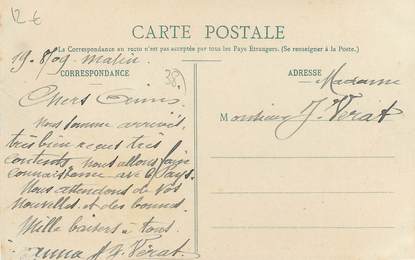 12 €
CARTE POSTALE
La Correspondance au recto n'est pas acceptée par tous les Pays Etrangers. (Se renseigner à la Poste.)
19-8/09-Matin
38
CORRESPONDANCE
Chers Amis
Nous somme arrivés,
très bien reçus très
contents, nous allons faire
connaissance avec le Pays.
Nous attendons de vos
nouvelles et des bonnes.
Mille baisers à tous.
Vérat
ADRESSE
Madame
Monsieur J. Vérat